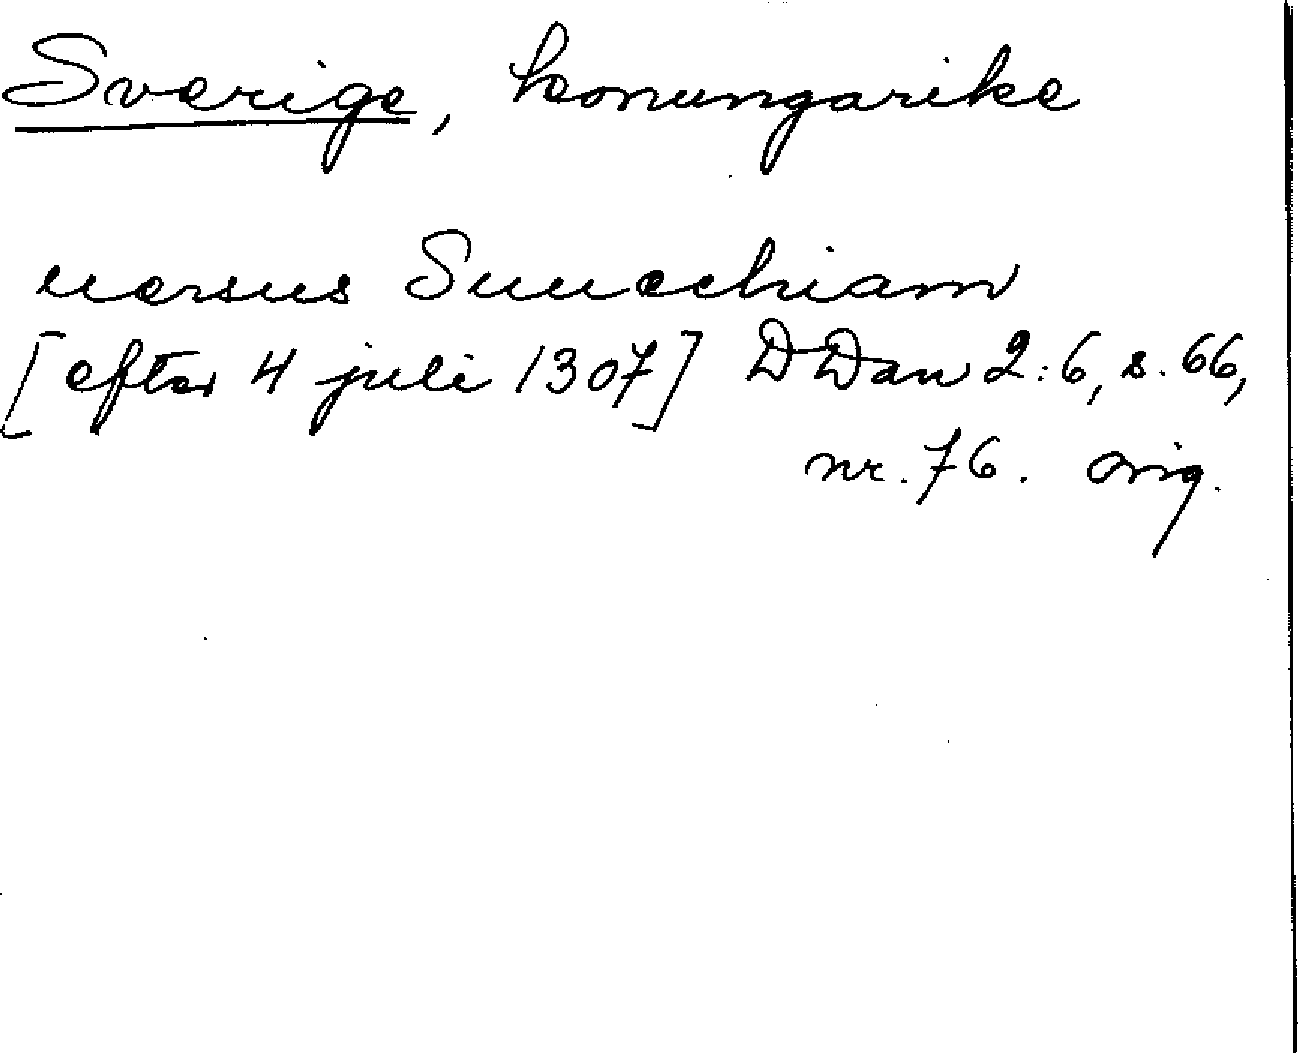 Sverige, konungarike
uersus Suuechiam
[efter 4 juli 1307] DDan 2:6, s. 66,
nr. 76. Orig.